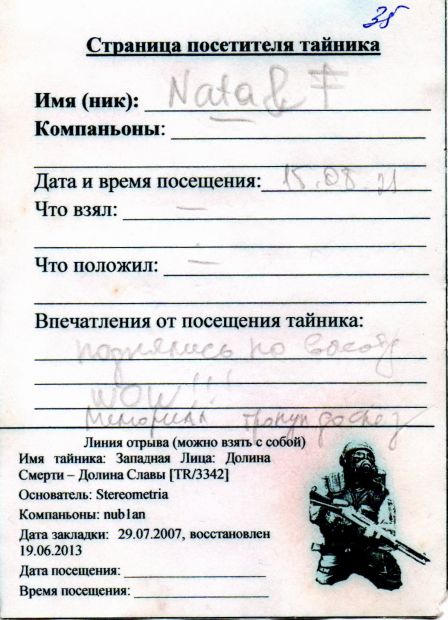 35
Страница посетителя тайника
Имя (ник): Nata & F
Компаньоны:
Дата и время посещения: 15.08.21
Что взял: —
Что положил: —
Впечатления от посещения тайника:
поднялись на высоту
WOW!!!
Мемориал
Линия отрыва (можно взять с собой)
Имя тайника: Западная Лица: Долина
Смерти – Долина Славы [TR/3342]
Основатель: Stereometria
Компаньоны: nub1an
Дата закладки: 29.07.2007, восстановлен
19.06.2013
Дата посещения:
Время посещения: